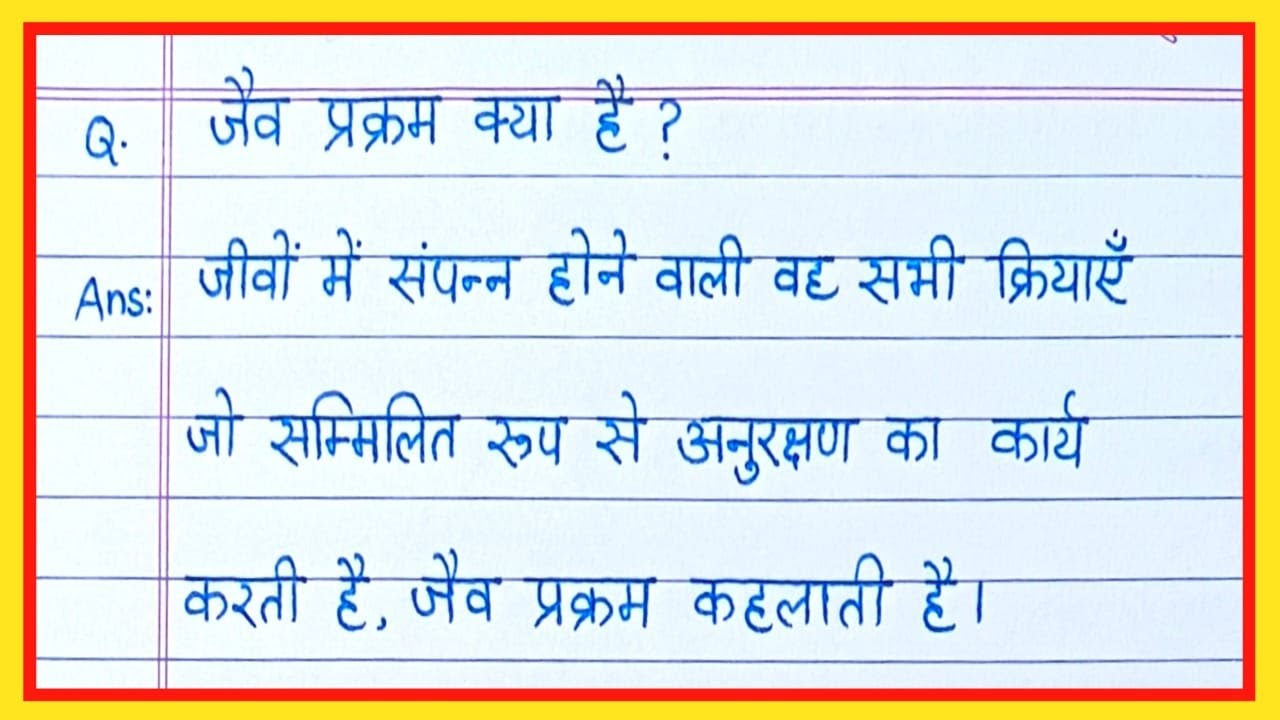 Q. जैव प्रक्रम क्या है ?
Ans: जीवों में संपन्न होने वाली वह सभी क्रियाएँ
जो सम्मिलित रूप से अनुरक्षण का कार्य
करती है, जैव प्रक्रम कहलाती है।